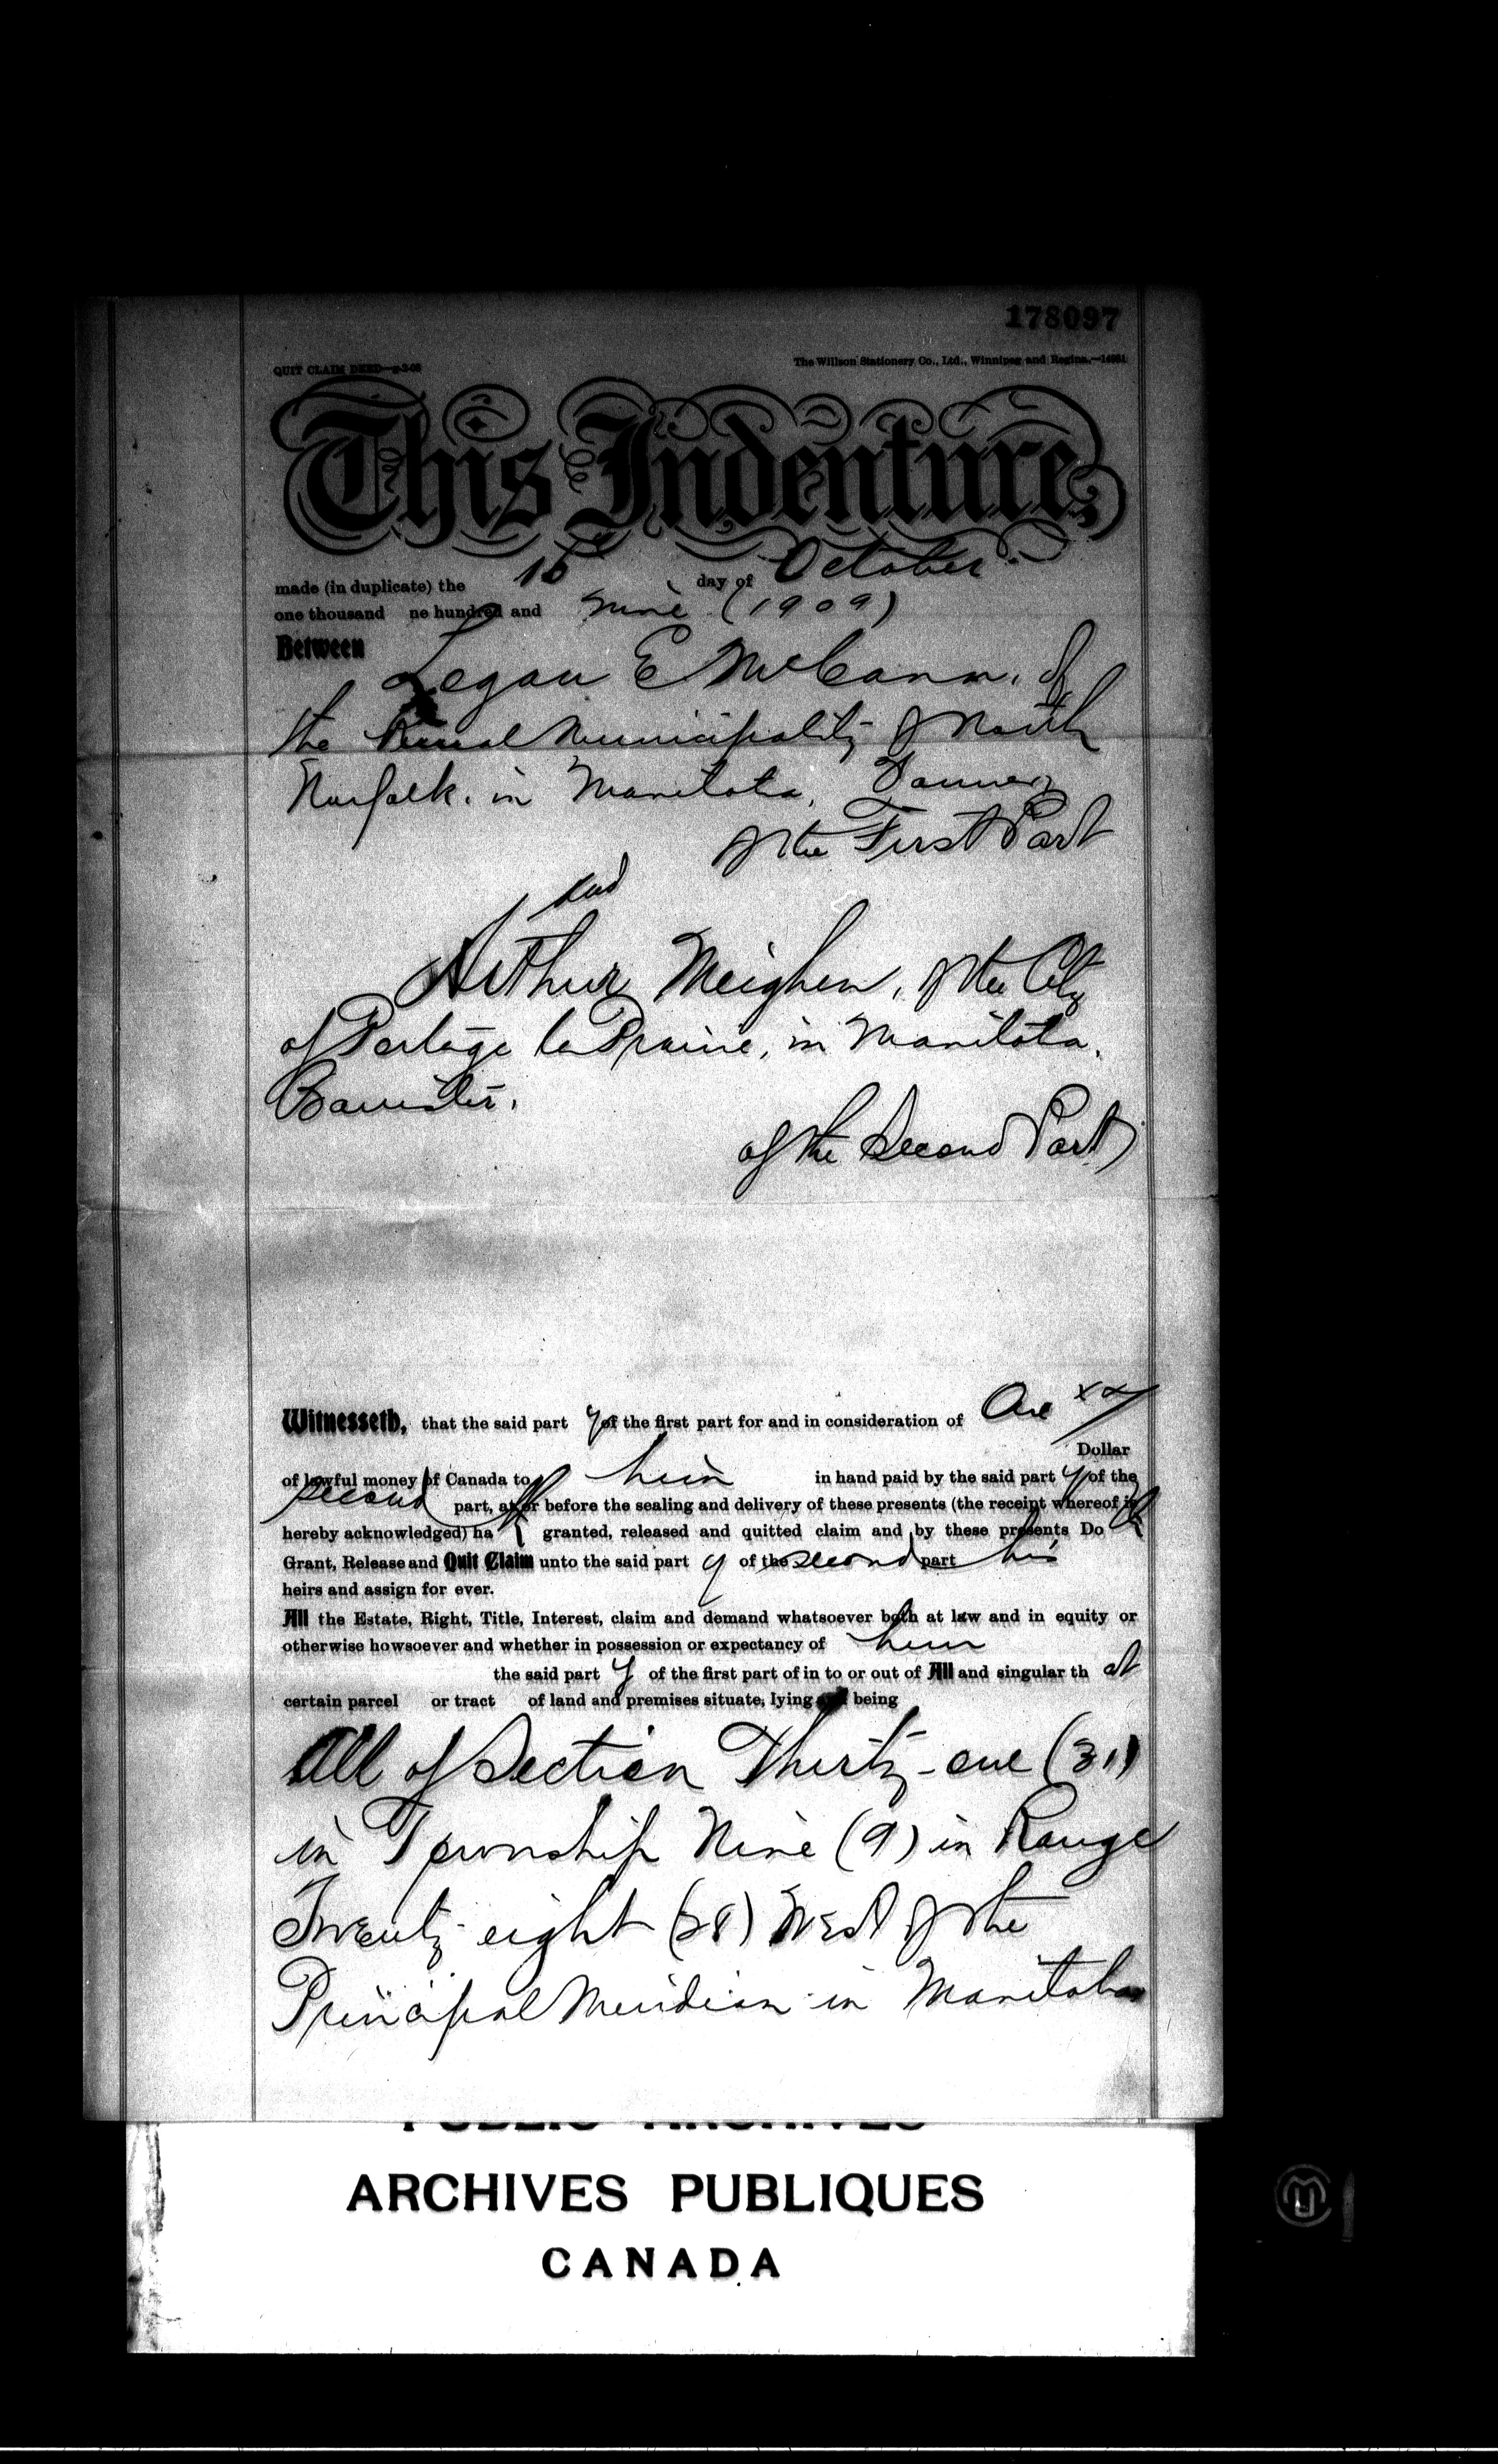 178097
QUIT CLAIM DEED
The Willson Stationery Co., Ltd., Winnipeg and Regina.
This Indenture,
made (in duplicate) the 16 day of October
one thousand ne hundred and nine (1909)
Between
Logan E McCann, of
the Rural Municipality of North
Norfolk. in Manitoba, Farmer
of the First Part
and
Arthur Meighen, of the City
of Portage la Prairie, in Manitoba,
Barrister.
of the Second Part
Witnesseth, that the said part y of the first part for and in consideration of One xx/
Dollar
of lawful money of Canada to him in hand paid by the said part y of the
second part, at or before the sealing and delivery of these presents (the receipt whereof is
hereby acknowledged) ha granted, released and quitted claim and by these presents Do th
Grant, Release and Quit Claim unto the said part y of the second part his
heirs and assign for ever.
All the Estate, Right, Title, Interest, claim and demand whatsoever both at law and in equity or
otherwise howsoever and whether in possession or expectancy of him
the said part y of the first part of in to or out of All and singular th at
certain parcel or tract of land and premises situate, lying and being
All of Section Thirty-one (31)
in Township Nine (9) in Range
Twenty-eight (28) West of the
Principal Meridian in Manitoba
ARCHIVES PUBLIQUES
CANADA